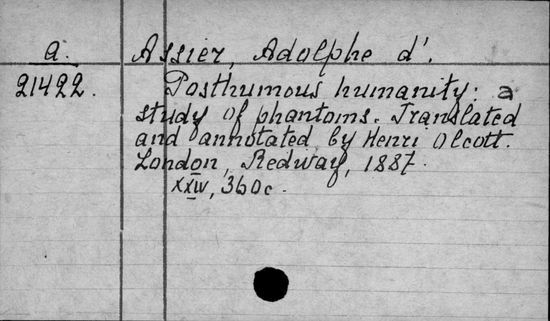 a. Assier, Adolphe d'.
21422. Posthumous humanity: a
study of phantoms. Translated
and annotated by Henri Olcott.
London, Redway, 1887.
XXIV, 360c.